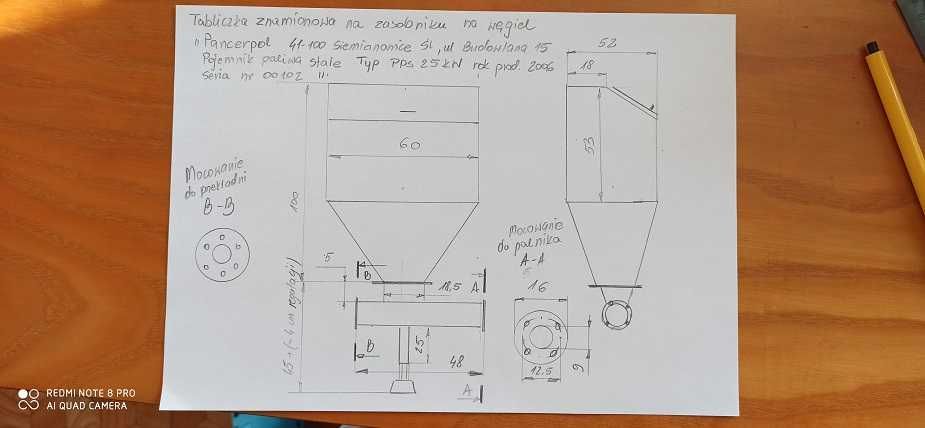 Tabliczka znamionowa na zasobniku na węgiel
"Pancerpol 41-100 Siemianowice Śl, ul Budowlana 15
Pojemnik paliwa stałe Typ PPS 25kN rok prod. 2006
Seria nr 00102 "
52
18
53
60
100
Mocowanie
do przekładni
B-B
5
B
A
18,5
45 + (-4 cm regulacji)
B
25
48
A
Mocowanie
do palnika
A-A
16
12.5
9
REDMI NOTE 8 PRO
AI QUAD CAMERA